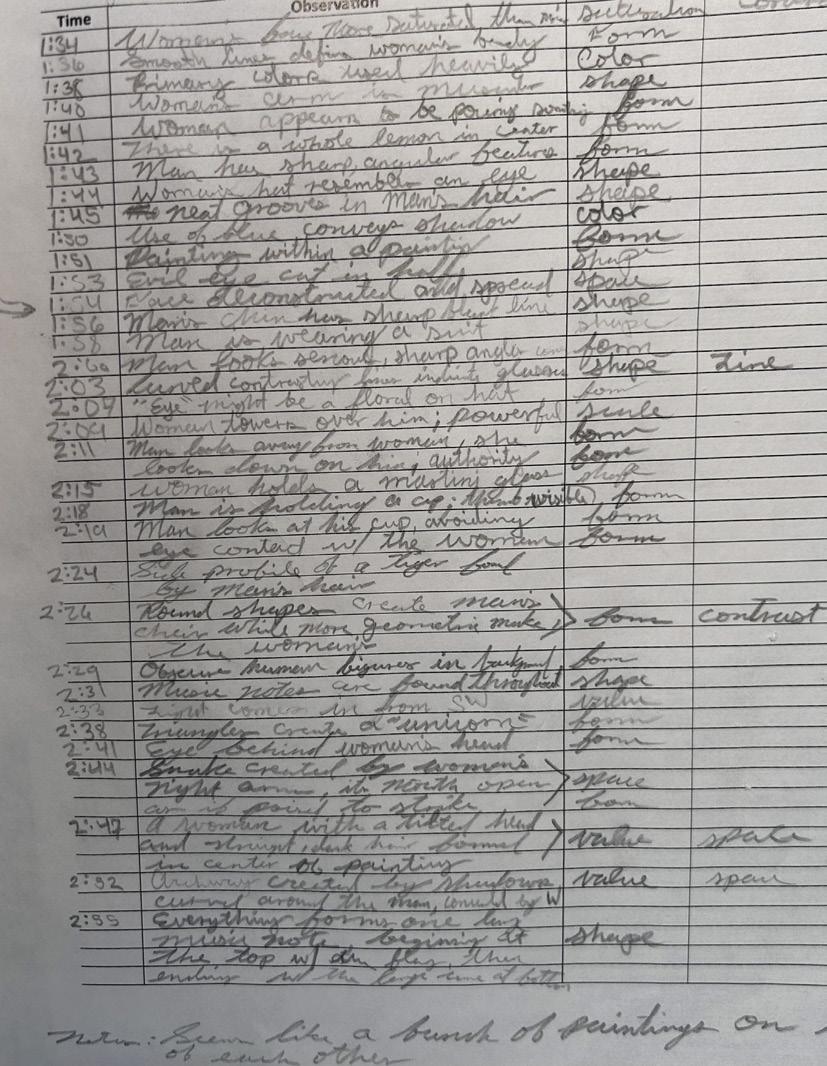 Time Observation
1:34 Woman's face more saturated than saturation
1:36 Smooth lines define woman's body Form
1:38 Primary colors used heavily Color
1:40 Woman's arm is muscular shape
1:41 Woman appears to be form
1:42 There is a whole lemon in center form
1:43 Man has sharp, angular features form
1:44 Woman's hat resembles an eye shape
1:45 neat grooves in man's hair shape
1:50 Use of blue conveys shadow color
1:51 Painting within a form
1:53 Evil eye cut in half shape
1:54 Face deconstructed and spread space
1:56 Man's chin has sharp line shape
1:58 Man is wearing a suit shape
Man looks serious, sharp angles form
2:03 Curved glasses shape Line
2:07 "Eye" might be a floral on hat form
2:09 Woman towers over him; powerful scale
2:11 Man looks away from woman, she form
looks down on him; authority form
2:15 woman holds a glass shape
2:18 Man is holding a cup; thumb visible form
2:19 Man looks at his cup, avoiding form
eye contact w/ the woman form
2:24 Side profile of a tiger
by man's hair
2:26 Round shapes create man's
chair while more geometric make form contrast
the woman's
2:29 Obscure human figures in form
2:31 Music notes are found throughout shape
2:33 Light comes in from SW value
2:38 Triangles create a "unicorn" form
2:41 Eye behind woman's head form
2:44 Snake created by woman's
right arm, its mouth open space
as if poised to strike form
2:47 A woman with a tilted head
and straight, dark hair formed value space
in center of painting
2:52 Archway created by shadows, value space
around the man, by W
2:55 Everything forms one
music note, beginning at shape
the top w/ flag, then
ending w/ the large at bottom
Notes: Seems like a bunch of paintings on
of each other